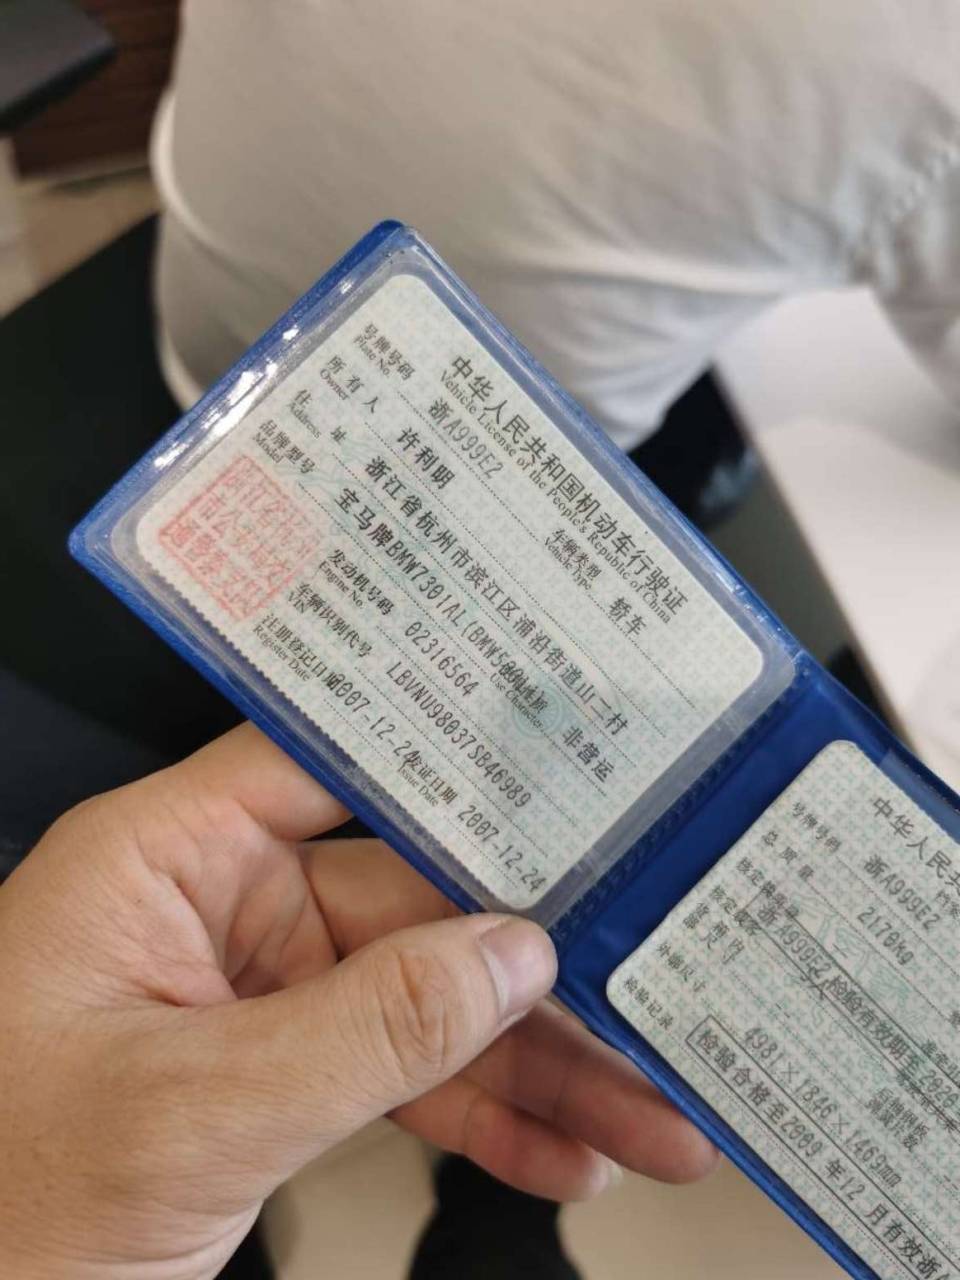 中华人民共和国机动车行驶证
Vehicle License of the People's Republic of China
号牌号码 浙A999E2 车辆类型 轿车
Plate No. Vehicle Type
所有人 许利明
Owner
住址 浙江省杭州市滨江区浦沿街道山二村
Address
品牌型号 宝马牌BMW7301AL(BMW5 使用性质 非营运
Model Use Character
发动机号码 02316564
Engine No.
车辆识别代号 LBVNU98037SB46989
VIN
注册登记日期 2007-12-24 发证日期 2007-12-24
Register Date Issue Date
中华人民共
号牌号码 浙A999E2
总质量 2170kg
核定
浙A999E2 检验有效期至2020
外廓尺寸 4981×1846×1469mm
检验记录 检验合格至2009年12月有效浙